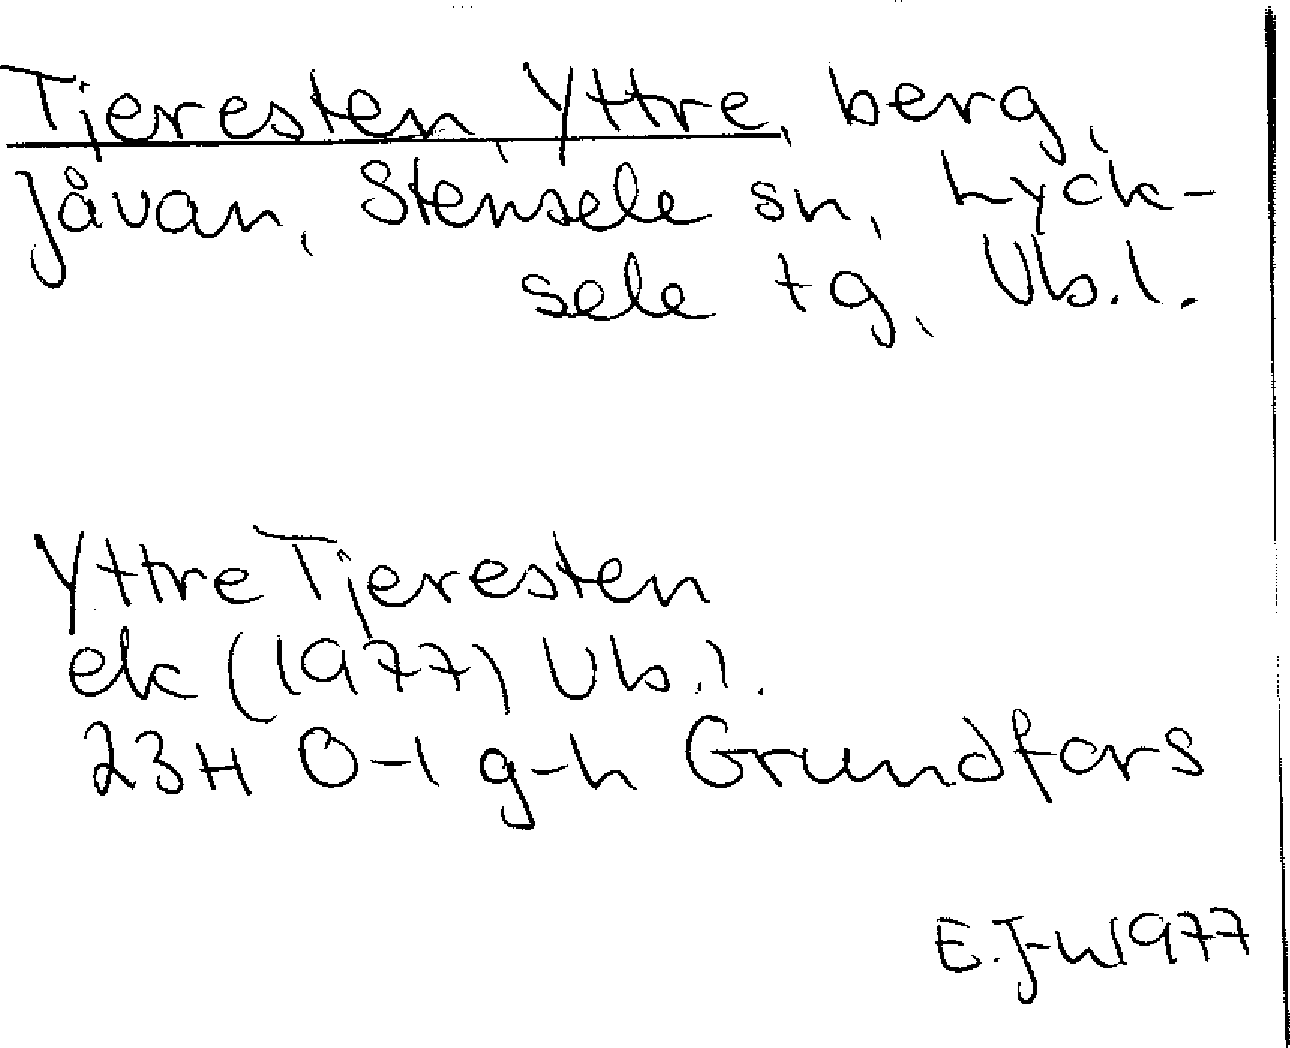 Tjeresten, Yttre, berg,
Jåvan, Stensele sn, Lyck-
sele tg, Vb.l.
Yttre Tjeresten
ek (1977) Vb.l.
23H 0-1 g-h Grundfors
E.J-W 1977